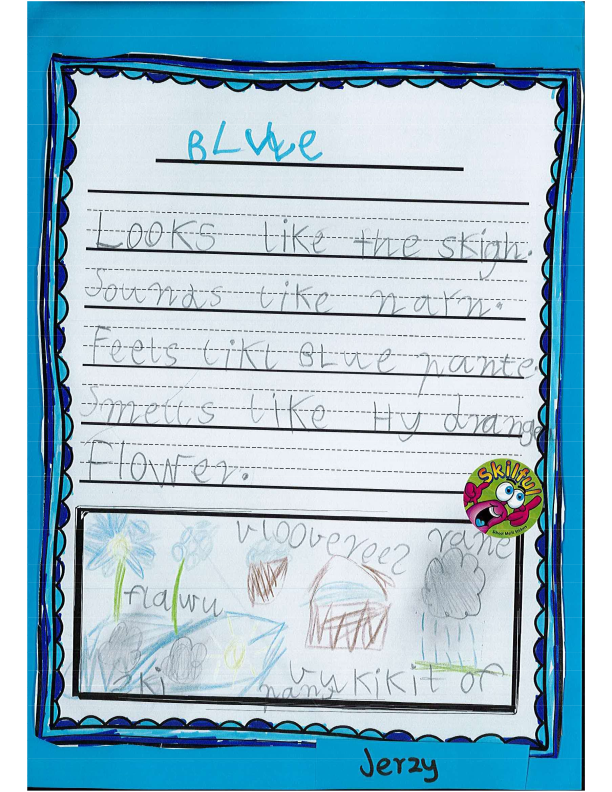 BLUE
Looks like the skigh.
Sounds like narn.
Feels likt BLue pante.
Smells like Hydrangea
Flower.
Skilful!
vlooverees
rane
flawu
ski
vu kikit of
pant
Jerzy